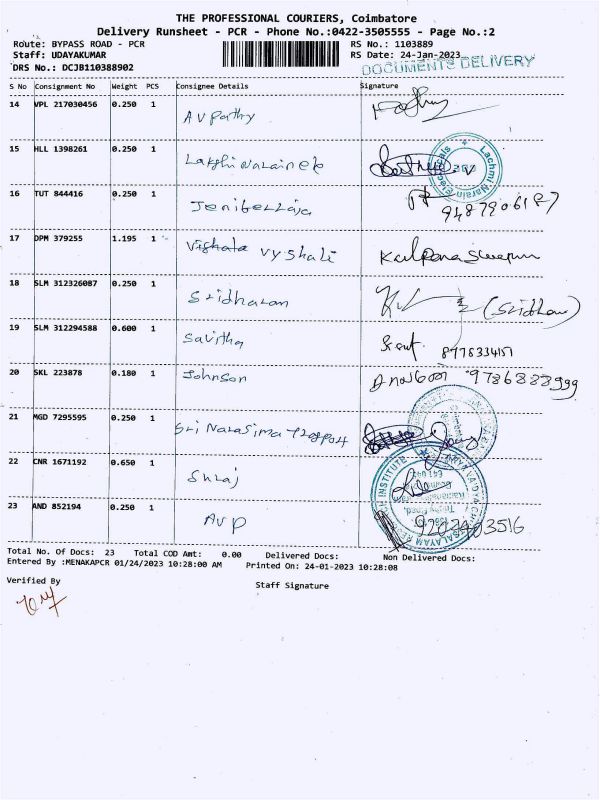 THE PROFESSIONAL COURIERS, Coimbatore
Delivery Runsheet - PCR - Phone No.:0422-3505555 - Page No.:2
Route: BYPASS ROAD - PCR RS No.: 1103889
Staff: UDAYAKUMAR RS Date: 24-Jan-2023
DRS No.: DCJB110388902 DOCUMENTS DELIVERY
S No Consignment No Weight PCS Consignee Details Signature
14 VPL 217030456 0.250 1 AVParthy
15 HLL 1398261 0.250 1
16 TUT 844416 0.250 1 Jeniferraja 9487906187
17 DPM 379255 1.195 1 Vishala Vyshali
18 SLM 312326087 0.250 1 Sridharan (Sridharan)
19 SLM 312294588 0.600 1 Savitha 8778334151
20 SKL 223878 0.180 1 Johnson
21 MGD 7295595 0.250 1 Sri Narasima
22 CNR 1671192 0.650 1 Suraj
23 AND 852194 0.250 1 AVP
Total No. Of Docs: 23 Total COD Amt: 0.00 Delivered Docs: Non Delivered Docs:
Entered By :MENAKAPCR 01/24/2023 10:28:00 AM Printed On: 24-01-2023 10:28:08
Verified By Staff Signature